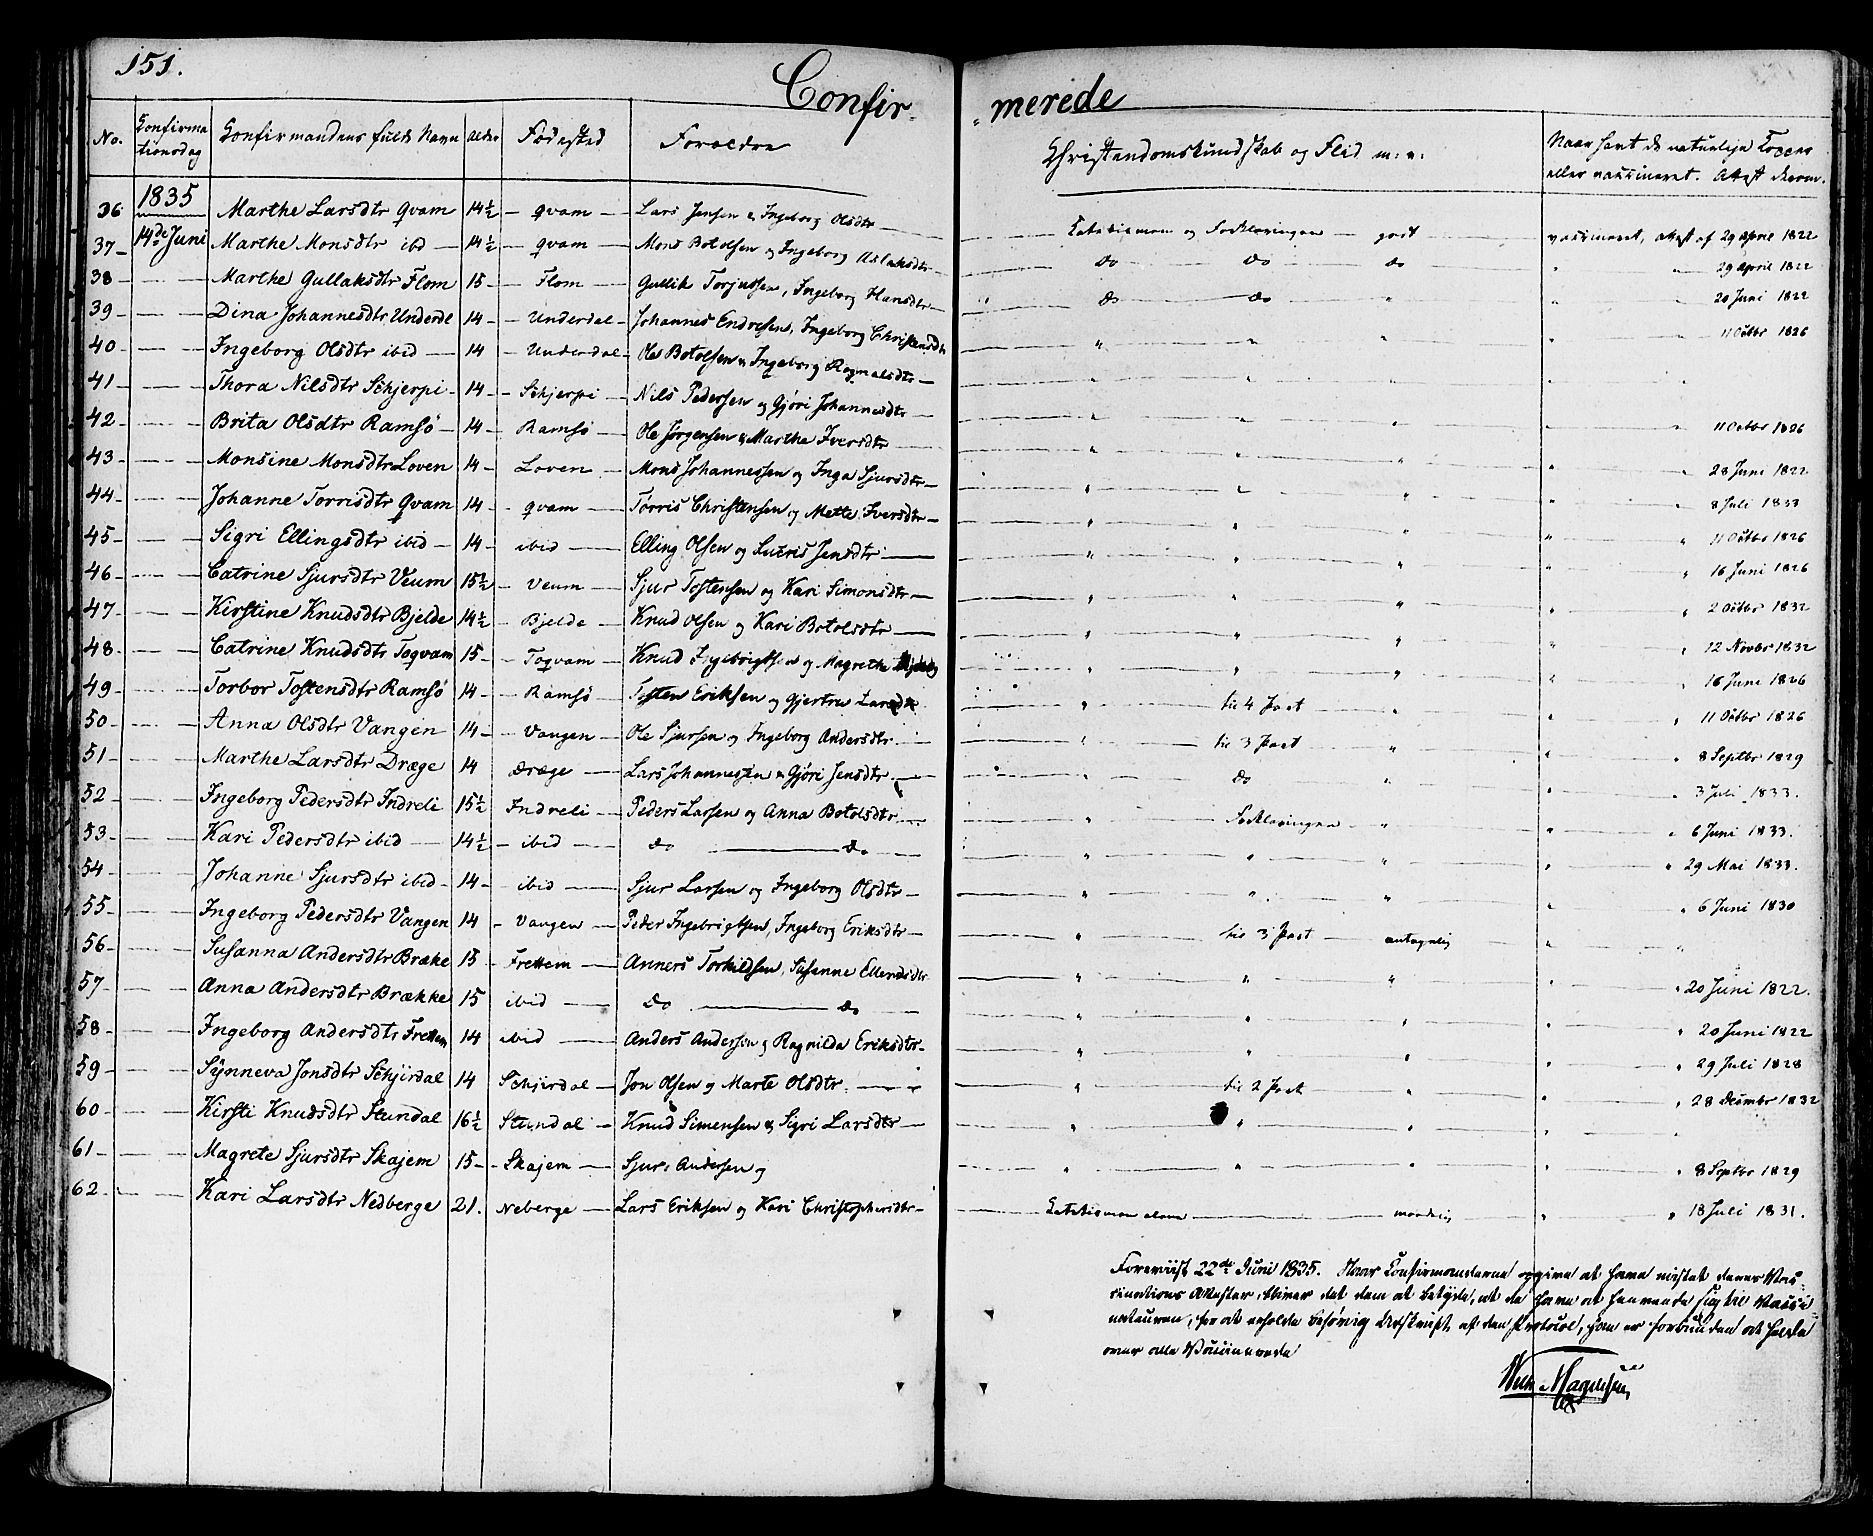 151.
Confir- -merede
No. Confirmationsdag Confirmandens fulde Navn Alder Fødested Forældre Christendomskundskab og Flid m: v: Naar havt de naturlige Copper eller vaccineret. Attest derom.
1835
36 14de Juni Marthe Larsdtr Qvam 14½ Qvam Lars Jensen & Ingeborg Olsdtr Catechismen og Forklaringen godt vaccineret, attest af 29 April 1822
37 Marthe Monsdtr ibd 14½ Qvam Mons Botolsen og Ingeborg Aslaksdtr Do Do Do " " 29 April 1822
38 Marthe Gullaksdtr Flom 15 Flom Gullik Torjussen, Ingeborg Hansdtr Do Do " " 20 Juni 1822
39 Dina Johannesdtr Underdl 14 Underdal Johannes Endresen, Ingeborg Christensdtr " " " " 11 Octbr 1826
40 Ingeborg Olsdtr ibid 14 Underdal Ole Botolsen & Ingeborg Ragnalsdtr " " " " "
41 Thora Nilsdtr Schjerpi 14 Schjerpi Nils Pedersen og Gjøri Johannesdtr " " " " 11 Octbr 1826
42 Brita Olsdtr Ramsø 14 Ramsø Ole Jørgensen & Marthe Iversdtr " " " " 28 Juni 1822
43 Monsine Monsdtr Loven 14 Loven Mons Johannessen og Inga Sjursdtr " " " " 8 Juli 1833
44 Johanne Torrisdtr Qvam 14 Qvam Tørris Christensen og Mette Iversdtr " " " " 11 Octbr 1826
45 Sigri Ellingsdtr ibid 14 ibid Elling Olsen og Jensdtr " " " " 16 Juni 1826
46 Catrine Sjursdtr Veum 15½ Veum Sjur Tostensen og Kari Simonsdtr " " " " 2 Octbr 1832
47 Kirstine Knudsdtr Bjelde 14½ Bjelde Knud Olsen og Kari Botolsdtr " " " " 12 Novbr 1832
48 Catrine Knudsdtr Toqvam 15 Toqvam Knud Ingebrigtsen og Magrethe " " " " 16 Juni 1826
49 Torbor Tostensdtr Ramsø 14 Ramsø Tosten Eriksen og Gjertru Larsdtr " til 4 Part " " 11 Octbr 1826
50 Anna Olsdtr Vangen 14 Vangen Ole Sjursen og Ingeborg Andersdtr " til 3 Part " " 8 Septbr 1829
51 Marthe Larsdtr Dræge 14 Dræge Lars Johannessen & Gjøri Jensdtr " Do " " 3 Juli 1833.
52 Ingeborg Pedersdtr Indreli 15½ Indreli Peders Larsen og Anna Botolsdtr " Forklaringen " " 6 Juni 1833.
53 Kari Pedersdtr ibid 14½ ibid Do Do " " " " 29 Mai 1833.
54 Johanne Sjursdtr ibid 14 ibid Sjur Larsen og Ingeborg Olsdtr " " " " 6 Juni 1830
55 Ingeborg Pedersdtr Vangen 14 Vangen Peder Ingebrigtsen, Ingeborg Eriksdtr " til 3 Part antagelig " "
56 Susanna Andersdtr Bræke 15 Frettem Anners Torkildsen, Susanne Ellendsdtr " " " " 20 Juni 1822.
57 Anna Andersdtr Brække 15 ibid Do Do " " " " 20 Juni 1822
58 Ingeborg Andersdtr Frettem 14 ibid Anders Andersen og Ragnilda Eriksdtr " " " " 29 Juli 1828
59 Synneva Jonsdtr Schjirdal 14 Schjirdal Jon Olsen og Marte Olsdtr " til 2 Part " " 28 Decembr 1832
60 Kirsti Knudsdtr Stundal 16½ Stundal Knud Simensen & Sigri Larsdtr " " " " "
61 Magrete Sjursdtr Skajem 15 Skajem Sjur Andersen og " " " " 8 Septbr 1829
62 Kari Larsdtr Nedberge 21. Neberge Lars Eriksen og Kari Christophersdtr Catechismen alene maadelig " " 18 Juli 1831.
Foreviist 22de Juni 1835. Naar Confirmanderne opgive at have mistet deres Vac-
cinations Attester, bliver det dem at betyde, at de have at henvende sig til Vacci-
nateuren, for at erholde behørig Udskrift af den Protocol, som er forbunden at holde
over alle Vaccinerede